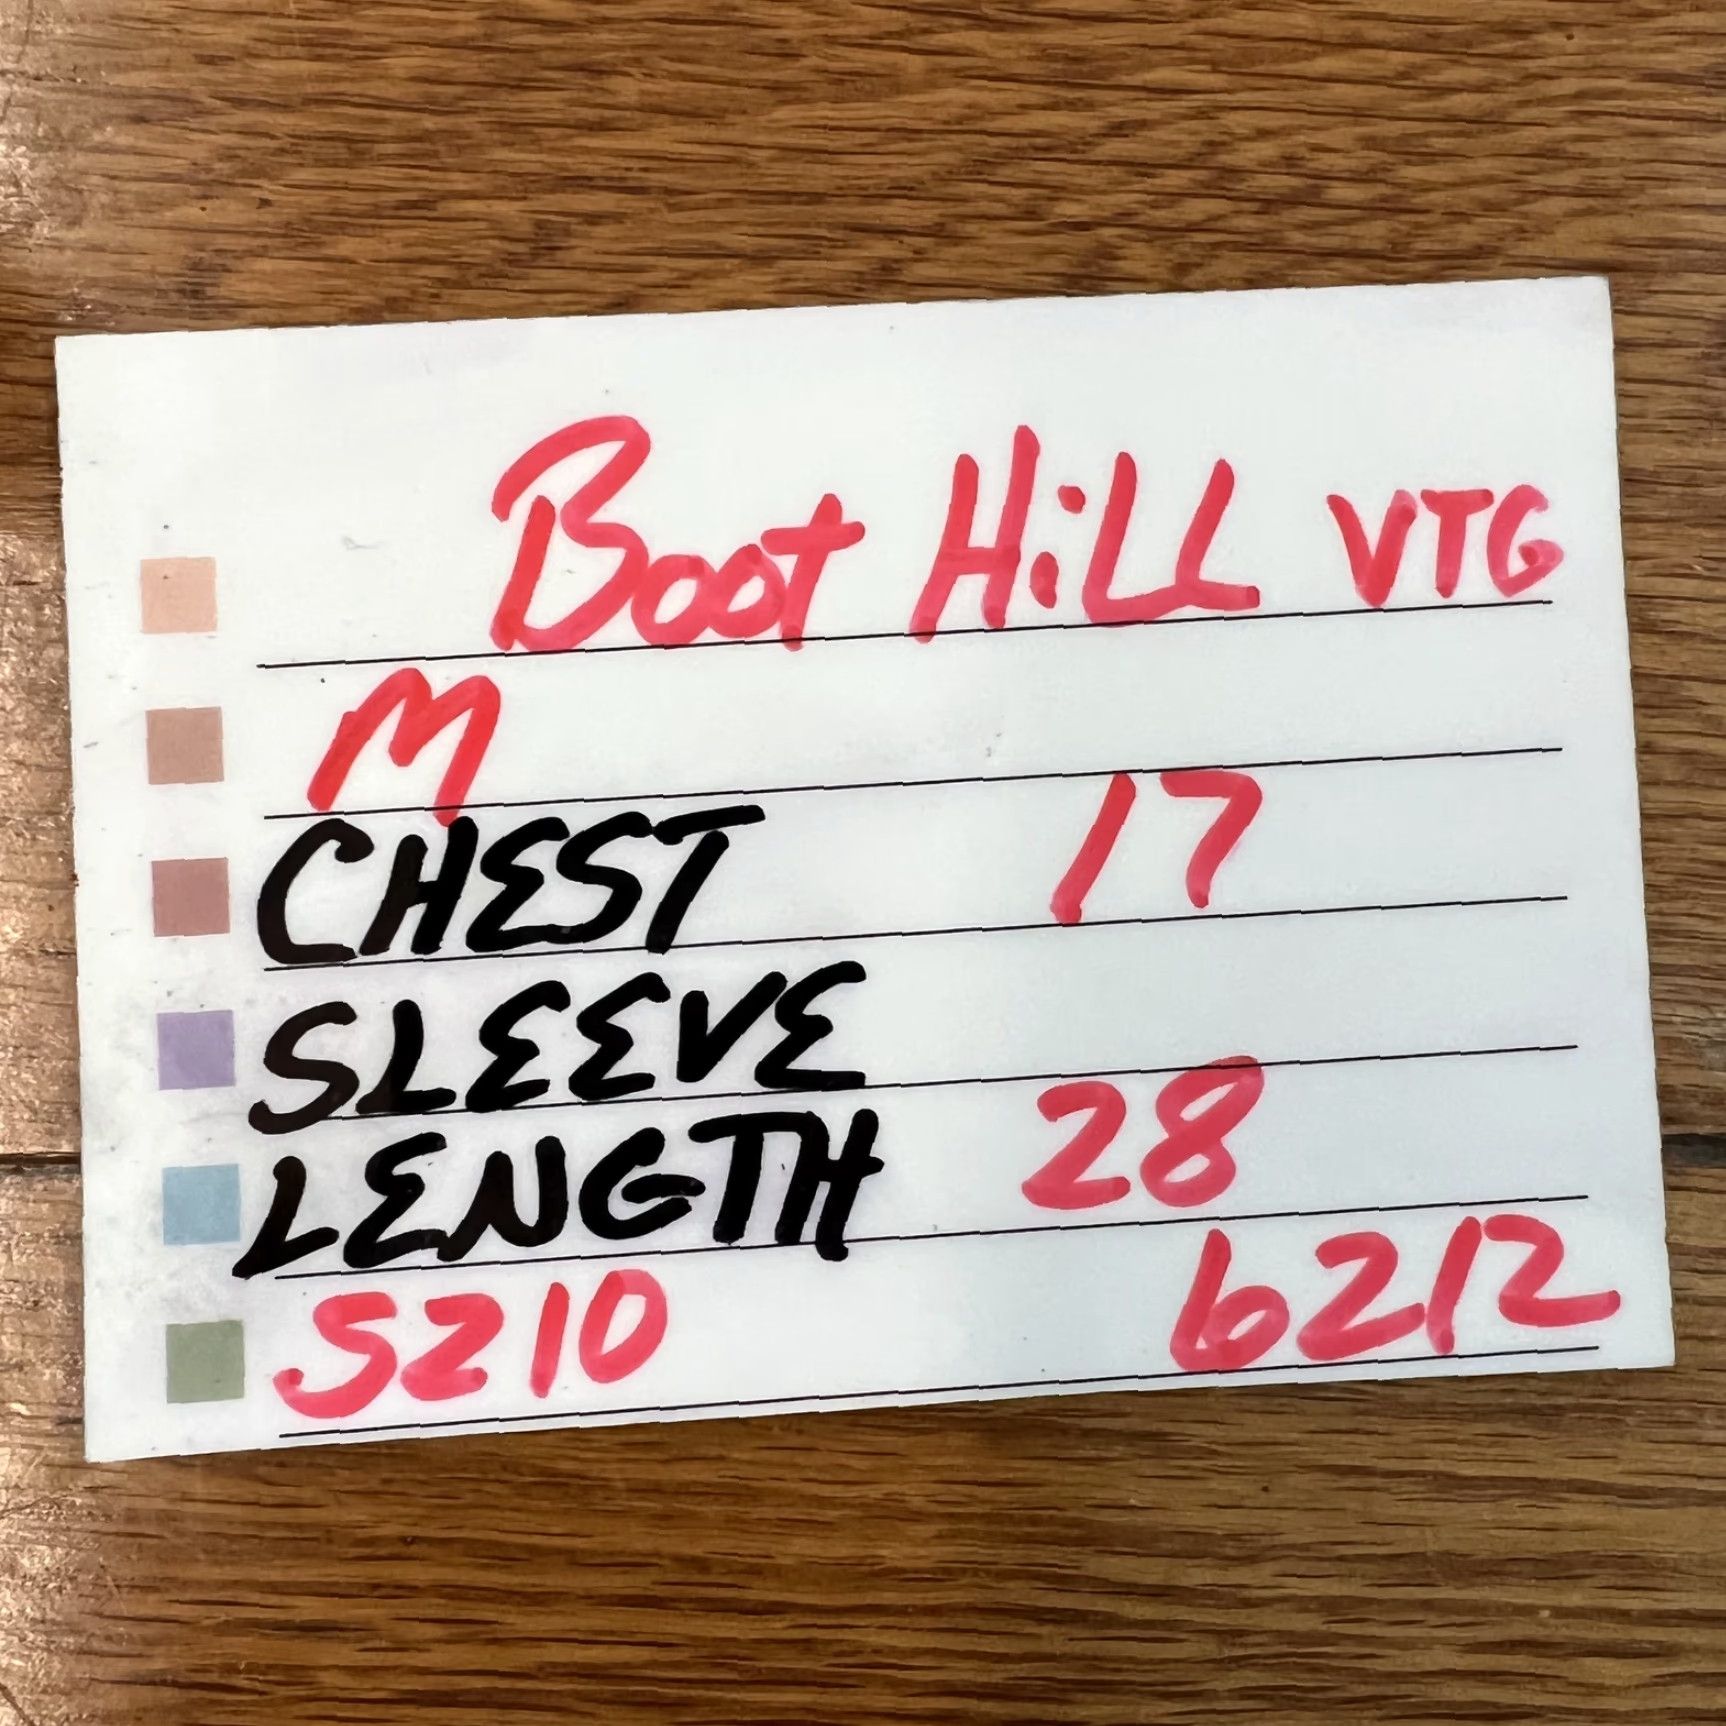 Boot HiLL VTG
M
CHEST 17
SLEEVE
LENGTH 28
S210 6212